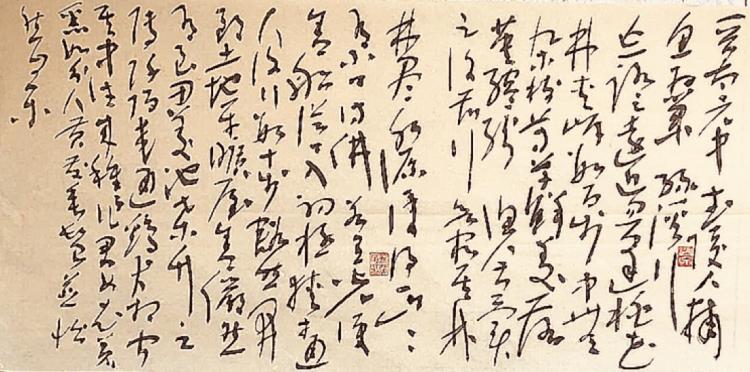 晉太元中武陵人捕
魚為業緣溪行
忘路之遠近忽逢桃花
林夾岸數百步中無
雜樹芳草鮮美落
英繽紛漁人甚異
之復前行欲窮其林
林盡水源便得一山山
有小口彷彿若有光便
舍船從口入初極狹才通
人復行數十步豁然開
朗土地平曠屋舍儼然
有良田美池桑竹之
屬阡陌交通雞犬相聞
其中往來種作男女衣著
悉如外人黃髮垂髫並怡
然自樂